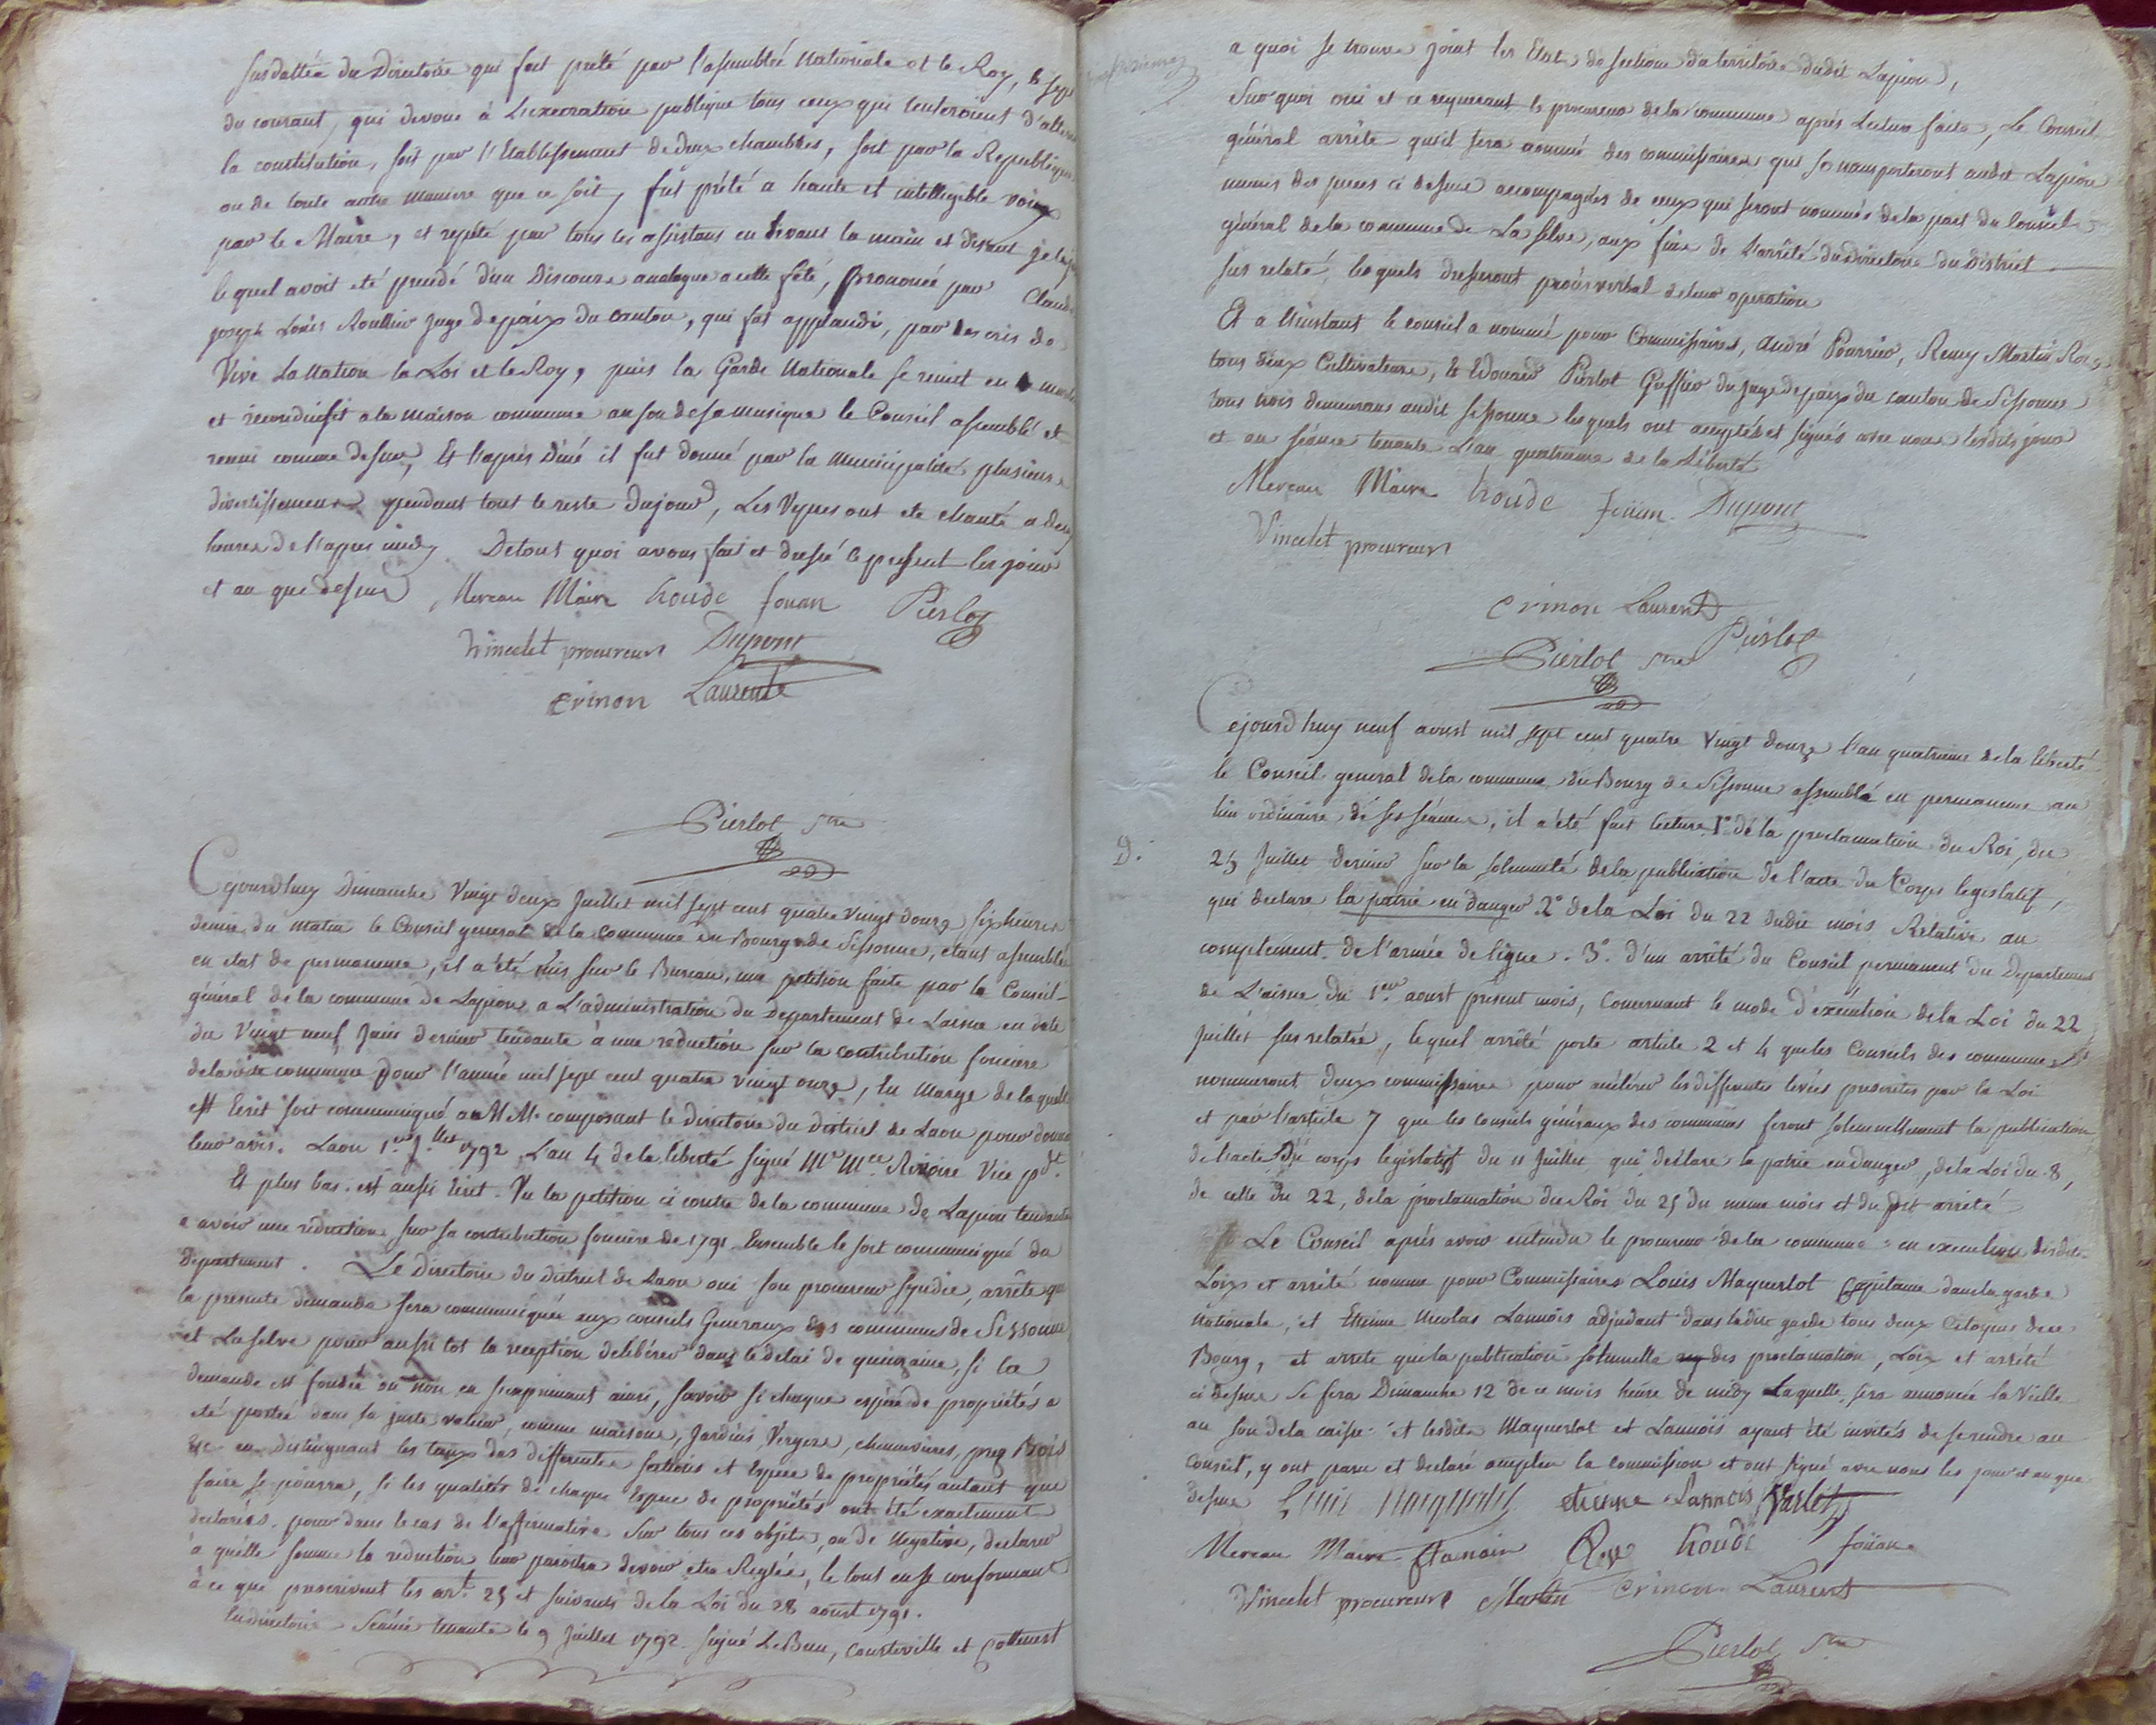 susdattée du Directoire qui fait prété par l'assemblée Nationale et le Roy, le sept
du courant, qui devoue à L'execration publique tous ceux qui tenteroient d'alterer
la constitution, soit par l'Etablissement de deux chambres, soit par la Republique
ou de toute autre maniere que ce soit, fut prété a haute et intelligible voix
par le Maire, et repété par tous les assistans en levant la main et disant je le jure
lequel avoit eté precedé d'un Discours analogue a cette fété, Prononcé par Claude
joseph Louis Roullier juge depaix du canton, qui fut applaudi, par des cris de
Vive La Nation la Loi et le Roy, puis la Garde Nationale se remit en marche
et reconduisit a la maison commune au son de sa musique le Conseil assemblé et
reuni comme dessus, Et l'après Diné il fut donné par la municipalité plusieurs
divertissemens pendant tout le reste du jour, Les Vepres ont eté chanté a deux
heures de l'apres midy. De tout quoi avons fait et dressé le present les jour
et an que dessus, Mereau Maire houde Jouan Pierlot
Vincelet procureur Dupont
crinon Laurent
Pierlot Sre
Cejourdhuy Dimanche Vingt deux Juillet mil sept cent quatre Vingt douze six heures
demie du matin le Conseil general de la Commune du Bourg de Sissonne, etant assemblé
en etat de permanence, il a été mis sur le Bureau, une petition faite par le Conseil
général de la commune de Lapion a L'administration du Departement de Laisne en date
du Vingt neuf Juin dernier tendante à une reduction sur la contribution fonciere
de ladite commune pour l'année mil sept cent quatre vingt onze, En Marge de laquelle
est Ecrit soit communiqué a MM. composant le directoire du district de Laon pour donner
leur avis. Laon 1er Jllet 1792 L'an 4 de la liberté signé Rivoire Vice pdt.
Et plus bas est aussi Ecrit. Vu la petition ci contre de la commune de Lapion tendante
a avoir une réduction sur sa contribution fonciere de 1791 Ensemble le soit communiqué du
Departement. Le Directoire du District de Laon oui son procureur syndic, arrête que
la presente demande sera communiquée aux conseils Generaux des communes de Sissonne
et La selve pour aussi tot la reception délibérer dans le delai de quinzaine, si la
demande est fondée ou non en s'exprimant ainsi, savoir si chaque espéce de propriétés a
eté portée dans sa juste valeur, comme maisons, Jardins, Vergers, chenevieres, prez Bois
Etc en distinguant les taux des differentes sections et Espece de propriétés autant que
faire se pourra, si les qualités de chaque Espece de propriétés ont été exactement
déclarées. pour dans le cas de l'affirmative sur tous ces objets, ou de Negative, declarer
à quelle somme la reduction leur paroitra devoir etre Reglée, le tout en se conformant
à ce que prescrivent les art. 25 et suivants de la Loi du 28 aoust 1791.
En directoire Séance tenante le 9 Juillet 1792. signé LeBrun, Courteville et Cottenest
a quoi se trouve joint les Etats de sections du territoire dudit Lapion,
Sur quoi oui et ce requerant le procureur de la commune après Lecture faite, Le Conseil
général arrête qu'il sera nommé des commissaires qui se transporteront audit Lapion
munis des pieces ci dessus accompagnés de ceux qui seront nommés de la part du Conseil
général de la commune de La Selve, aux fins de L'arrêté du directoire du District
sus relaté, lesquels dresseront procès verbal de leur operation
Et a l'instant le conseil a nommé pour Commissaires, André Pourrier, Remy Martin
tous deux Cultivateurs, Et Edouard Pierlot Greffier du Juge depaix du canton de Sissonne
tous trois demeurans audit Sissonne lesquels ont acceptés et signés avec nous lesdits jour
et an séance tenante L'an quatrieme de la Liberté
Mereau Maire houde Jouan Dupont
Vincelet procureur
crinon Laurent
Pierlot Sre Pierlot
Cejourd'huy neuf aoust mil sept cent quatre Vingt douze l'an quatrieme de la liberté
le Conseil general de la commune du Bourg de Sissonne assemblé en permanence au
lieu ordinaire de ses séances, il a été fait lecture 1° de la proclamation du Roi, du
D.
25 Juillet dernier sur la solemnité de la publication de l'acte du Corps legislatif,
qui declare la patrie en danger 2° de la Loi du 22 dudit mois Relative au
complement de l'armée de ligne. 3° d'un arrêté du Conseil permanent du Departement
de L'aisne du 1er aoust present mois, Concernant le mode d'exécution de la Loi du 22
Juillet sus relatée, lequel arrêté porte article 2 et 4 que les Conseils des communes
nommeront deux commissaires pour accélerer les differentes levées prescrites par la Loi
et par l'article 7 que les conseils généraux des communes feront solemnellement la publication
de l'acte du corps legislatif du 11 Juillet qui déclare la patrie en danger, de la Loi du 8,
de celle du 22, de la proclamation du Roi du 25 du meme mois et dudit arrêté
Le Conseil après avoir entendu le procureur de la commune en execution desdites
Loix et arrêté nomme pour Commissaires Louis Maquerlot Capitaine dans la garde
nationale, et Etienne Nicolas Lannois adjudant dans ladite garde tous deux Citoyens de ce
Bourg, et arrete que la publication solemnelle des proclamation, Loix et arrêté
ci dessus se fera Dimanche 12 de ce mois heure de midy Laquelle sera annoncée la Veille
au son de la caisse et lesdits Maquerlot et Lannois ayant été invités de se rendre au
Conseil, y ont paru et déclaré accepter la commission et ont signé avec nous les jour et an que
dessus Louis Maquerlot etienne Lannois Varlet
Mereau Maire houde Jouan
Vincelet procureur Martin crinon Laurent
Pierlot Sre